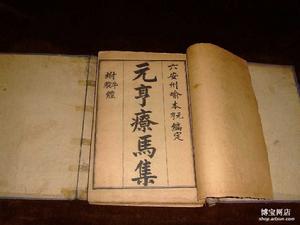 六安州喻本編定
元亨療馬集
牛
經
博宝网店
shop.artxun.com